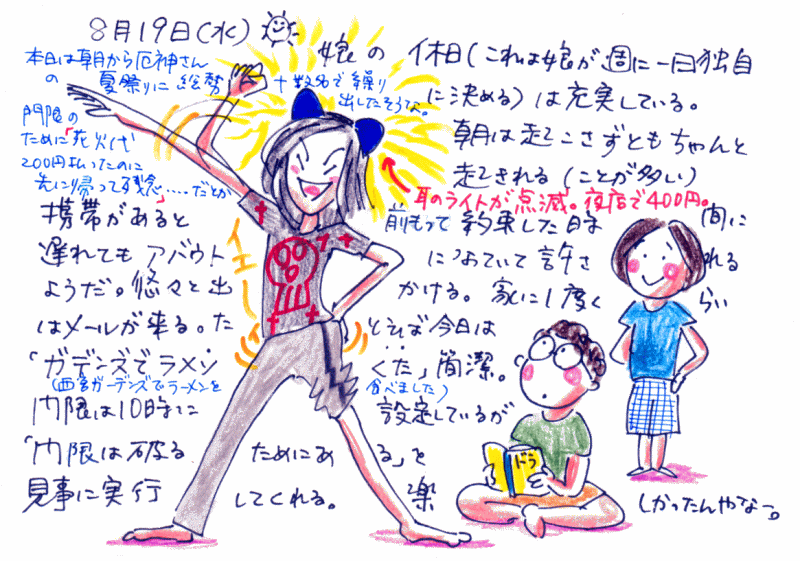 8月19日(水)
娘の休日(これは娘が週に一回独自
に決める)は充実している。
朝は起こさずともちゃんと
起される(ことが多い)
本日は朝から厄神さん
の夏祭りに総勢十数名で繰り
出したそうな。
門限の
ために「花火代
200円払ったのに
先に帰って残念……」だとか
耳のライトが点滅。夜店で400円。
携帯があると前もって約束した時間に
遅れてもアバウトに
許される
ようだ。悠々と出かける。家に1度くらい
はメールが来る。たとえば今日は
「ガデンズでラメンくた」簡潔。
(西宮ガーデンズでラーメンを食べました)
門限は10時に設定しているが
「門限は破るためにある」と
見事に実行してくれる。楽しかったんやなー。
イエーイ
ドラ